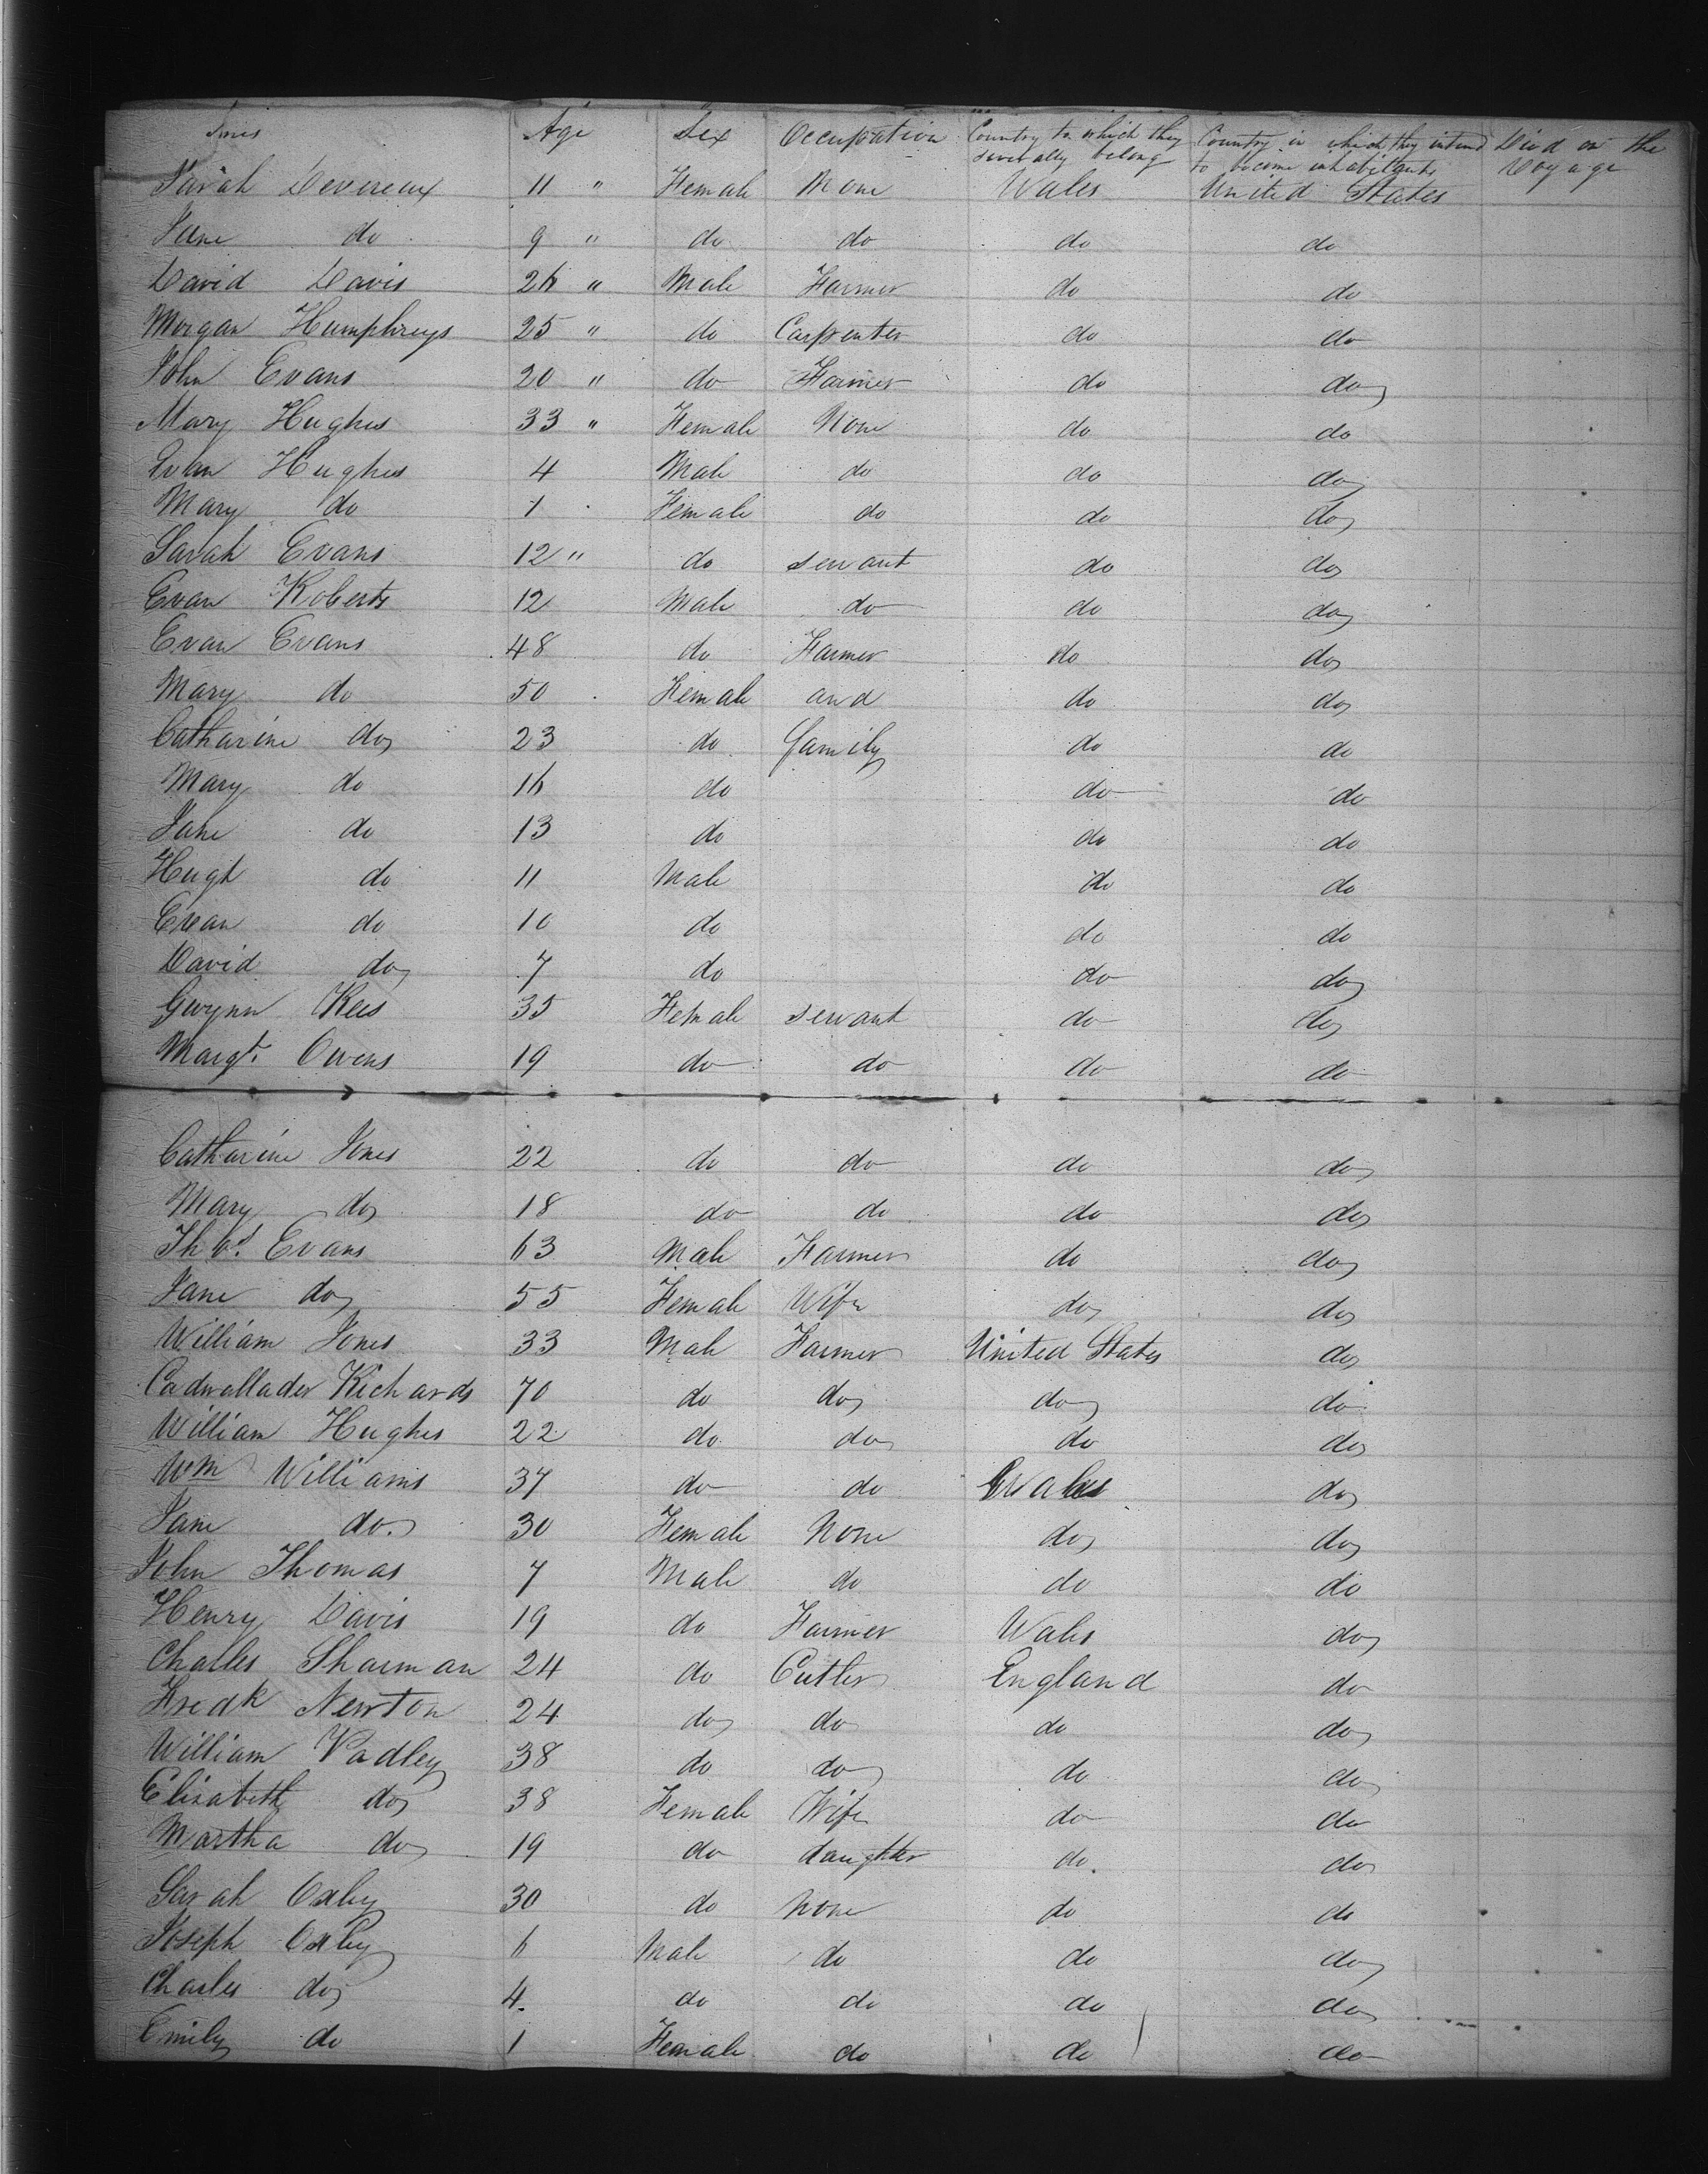 Names Age Sex Occupation Country to which they severally belong Country in which they intend to become inhabitants Died on the Voyage
Sarah Devereux 11 " Female None Wales United States
Jane do 9 " do do do do
David Davis 26 " Male Farmer do do
Morgan Humphreys 25 " do Carpenter do do
John Evans 20 " do Farmer do do
Mary Hughes 33 " Female None do do
Evan Hughes 4 Male do do do
Mary do 1 Female do do do
Sarah Evans 12 " do servant do do
Evan Roberts 12 Male do do do
Evan Evans 48 do Farmer do do
Mary do 50 Female and do do
Catharine do 23 do family do do
Mary do 16 do do do
Jane do 13 do do do
Hugh do 11 Male do do
Evan do 10 do do do
David do 7 do do do
Gwynn Rees 35 Female servant do do
Margt. Owens 19 do do do do
Catharine Jones 22 do do do do
Mary do 18 do do do do
Thos. Evans 63 Male Farmer do do
Jane do 55 Female Wife do do
William Jones 33 Male Farmer United States do
Cadwallader Richards 70 do do do do
William Hughes 22 do do do do
Wm Williams 37 do do Wales do
Jane do. 30 Female None do do
John Thomas 7 Male do do do
Henry Davis 19 do Farmer Wales do
Charles Sharman 24 do Cutler England do
Fredk Newton 24 do do do do
William Vadley 38 do do do do
Elizabeth do 38 Female Wife do do
Martha do 19 do daughter do. do
Sarah Oxley 30 do None do do
Joseph Oxley 6 Male do do do
Charles do 4 do do do do
Emily do 1 Female do do do